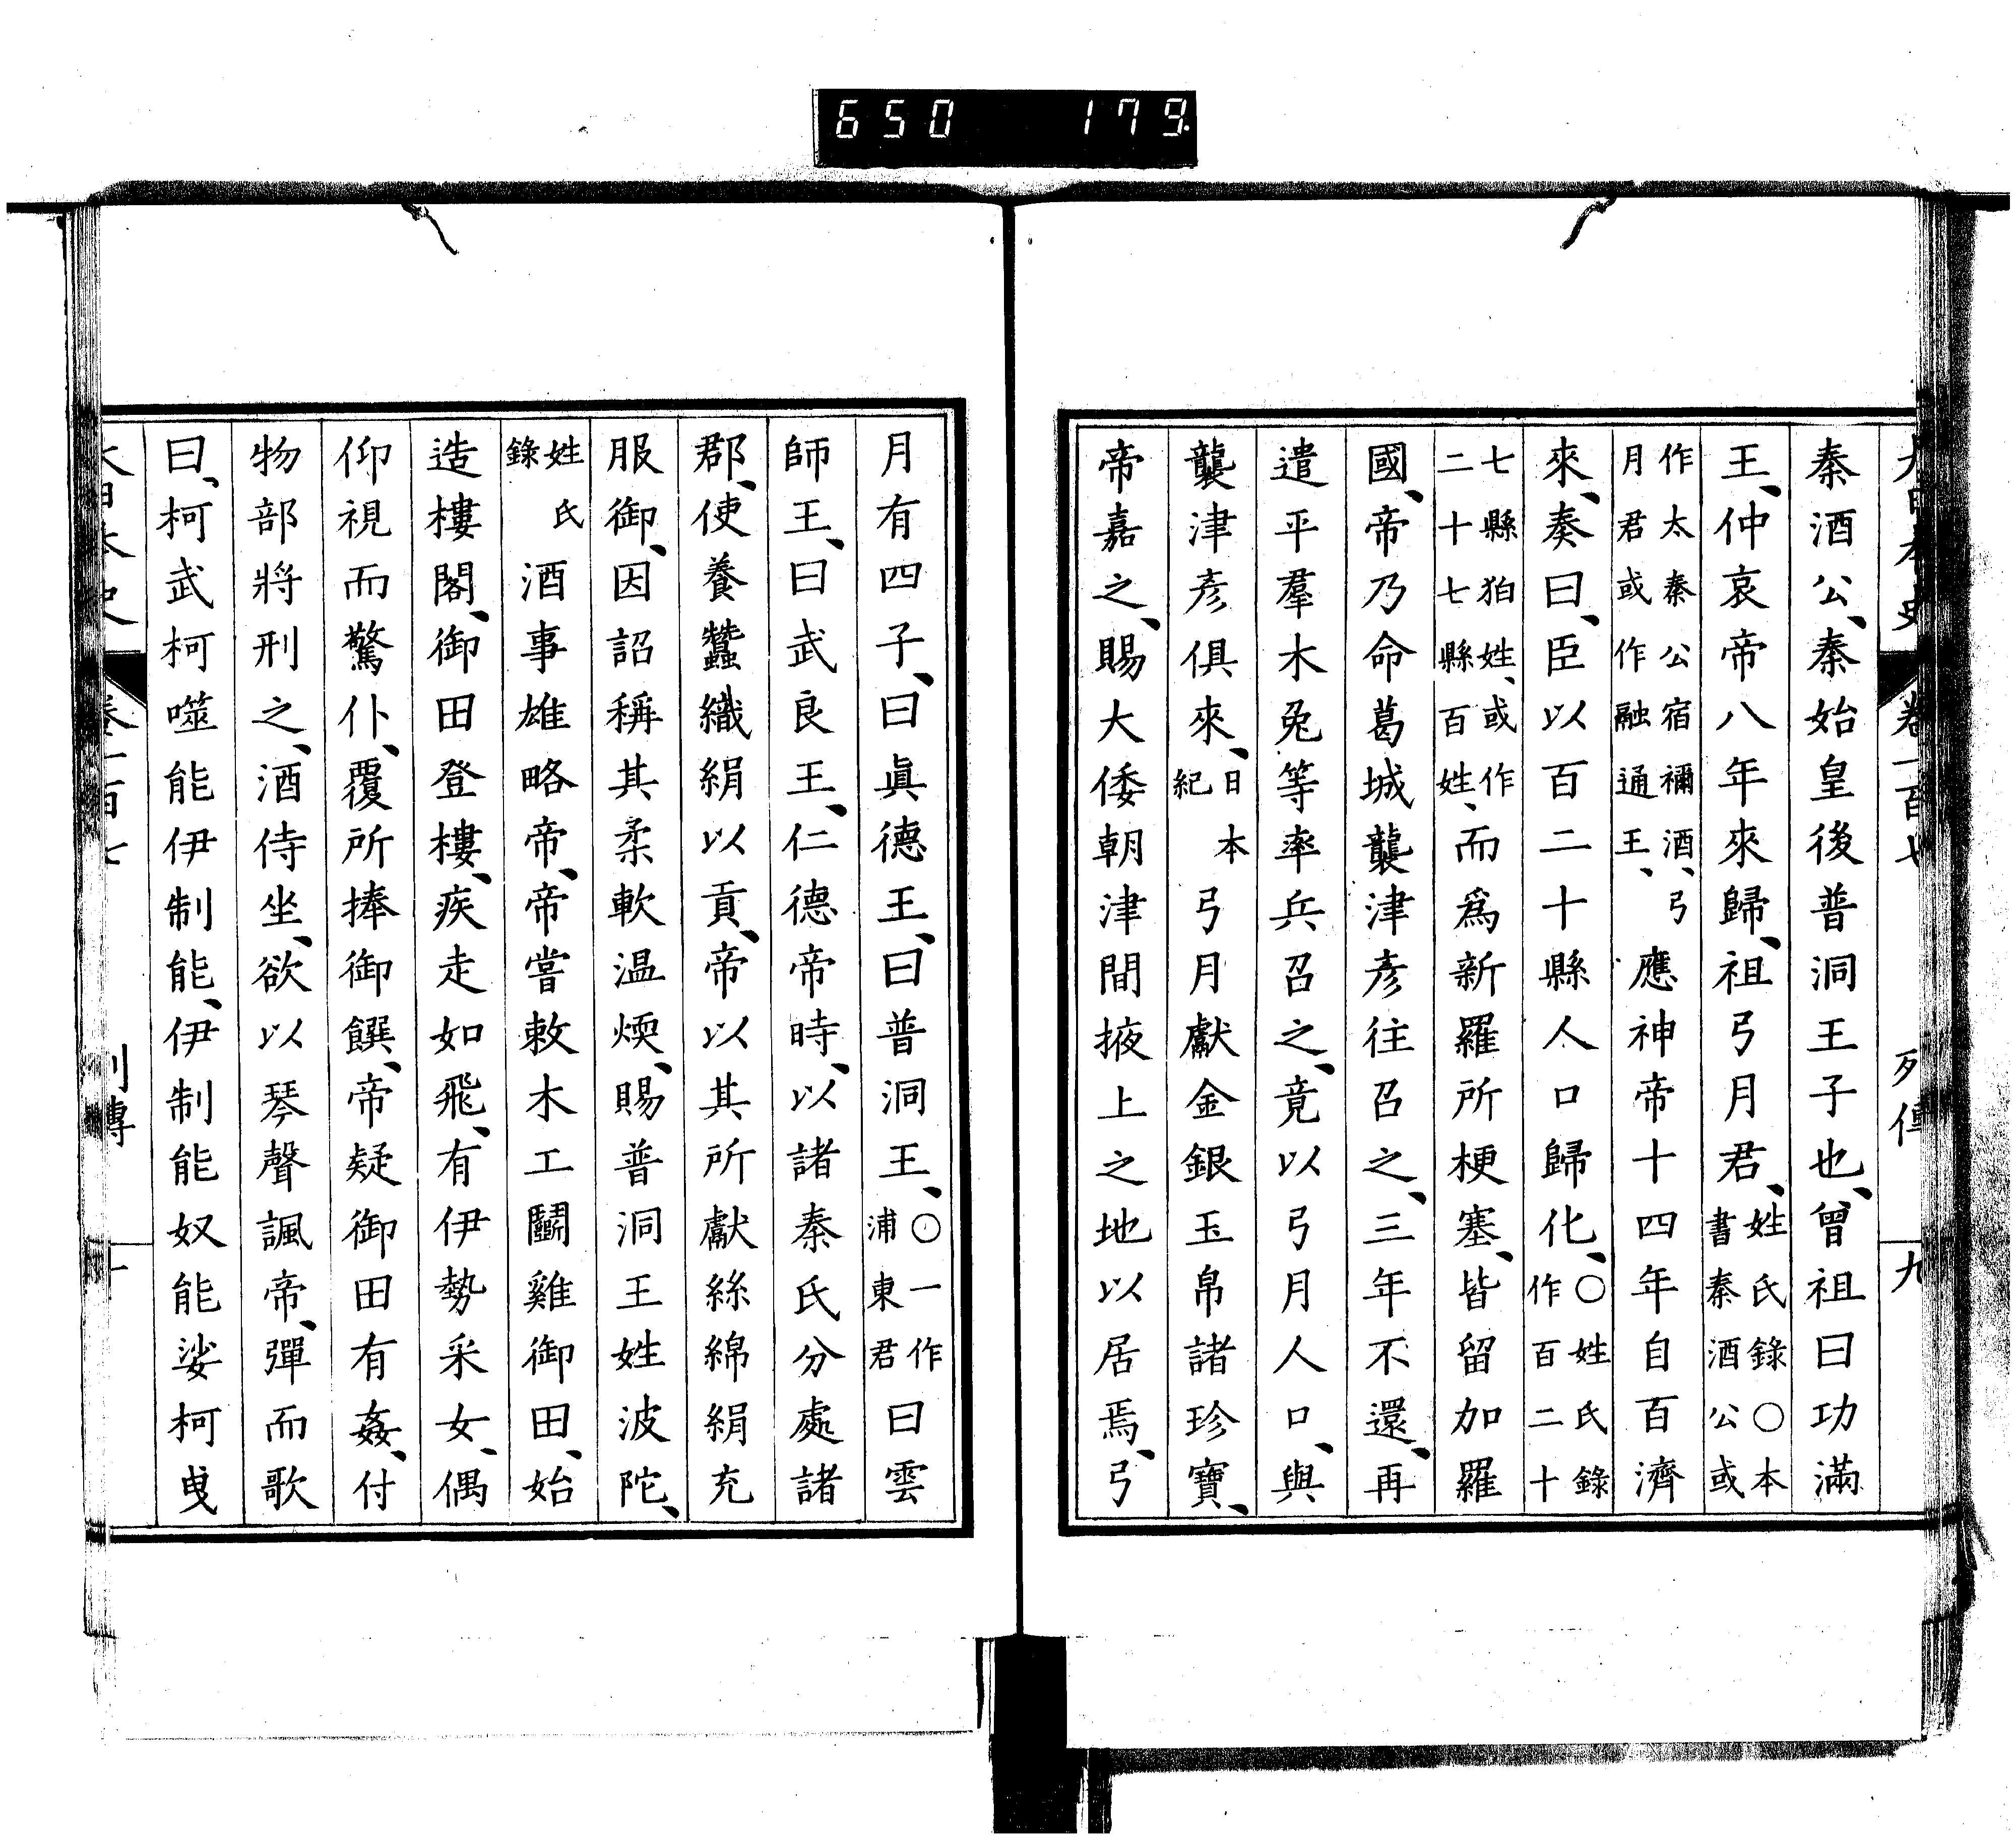 650 179
大日本史 卷一百七 列傳 九
秦酒公、秦始皇後普洞王子也、曾祖曰功滿
王、仲哀帝八年來歸、祖弓月君、姓氏錄○本書秦酒公或
作太秦公宿禰酒、弓月君或作融通王、應神帝十四年自百濟
來、奏曰、臣以百二十縣人口歸化、○姓氏錄作百二十
七縣狛姓、或作二十七縣百姓、而爲新羅所梗塞、皆留加羅
國、帝乃命葛城襲津彥往召之、三年不還、再
遣平羣木菟等率兵召之、竟以弓月人口、與
襲津彥俱來、日本紀弓月獻金銀玉帛諸珍寶、
帝嘉之、賜大倭朝津間掖上之地以居焉、弓
月有四子、曰眞德王、曰普洞王、○一作浦東君曰雲
師王、曰武良王、仁德帝時、以諸秦氏分處諸
郡、使養蠶織絹以貢、帝以其所獻絲綿絹充
服御、因詔稱其柔軟温煗、賜普洞王姓波陀、
姓氏錄酒事雄略帝、帝嘗敕木工鬭雞御田、始
造樓閣、御田登樓、疾走如飛、有伊勢采女、偶
仰視而驚仆、覆所捧御饌、帝疑御田有姦、付
物部將刑之、酒侍坐、欲以琴聲諷帝、彈而歌
曰、柯武柯噬能伊制能、伊制能奴能娑柯曳
大日本史 卷一百七 列傳 十